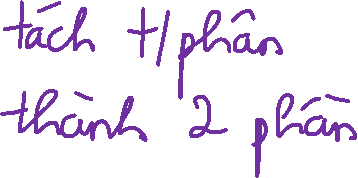 tách t/phân
thành 2 phần